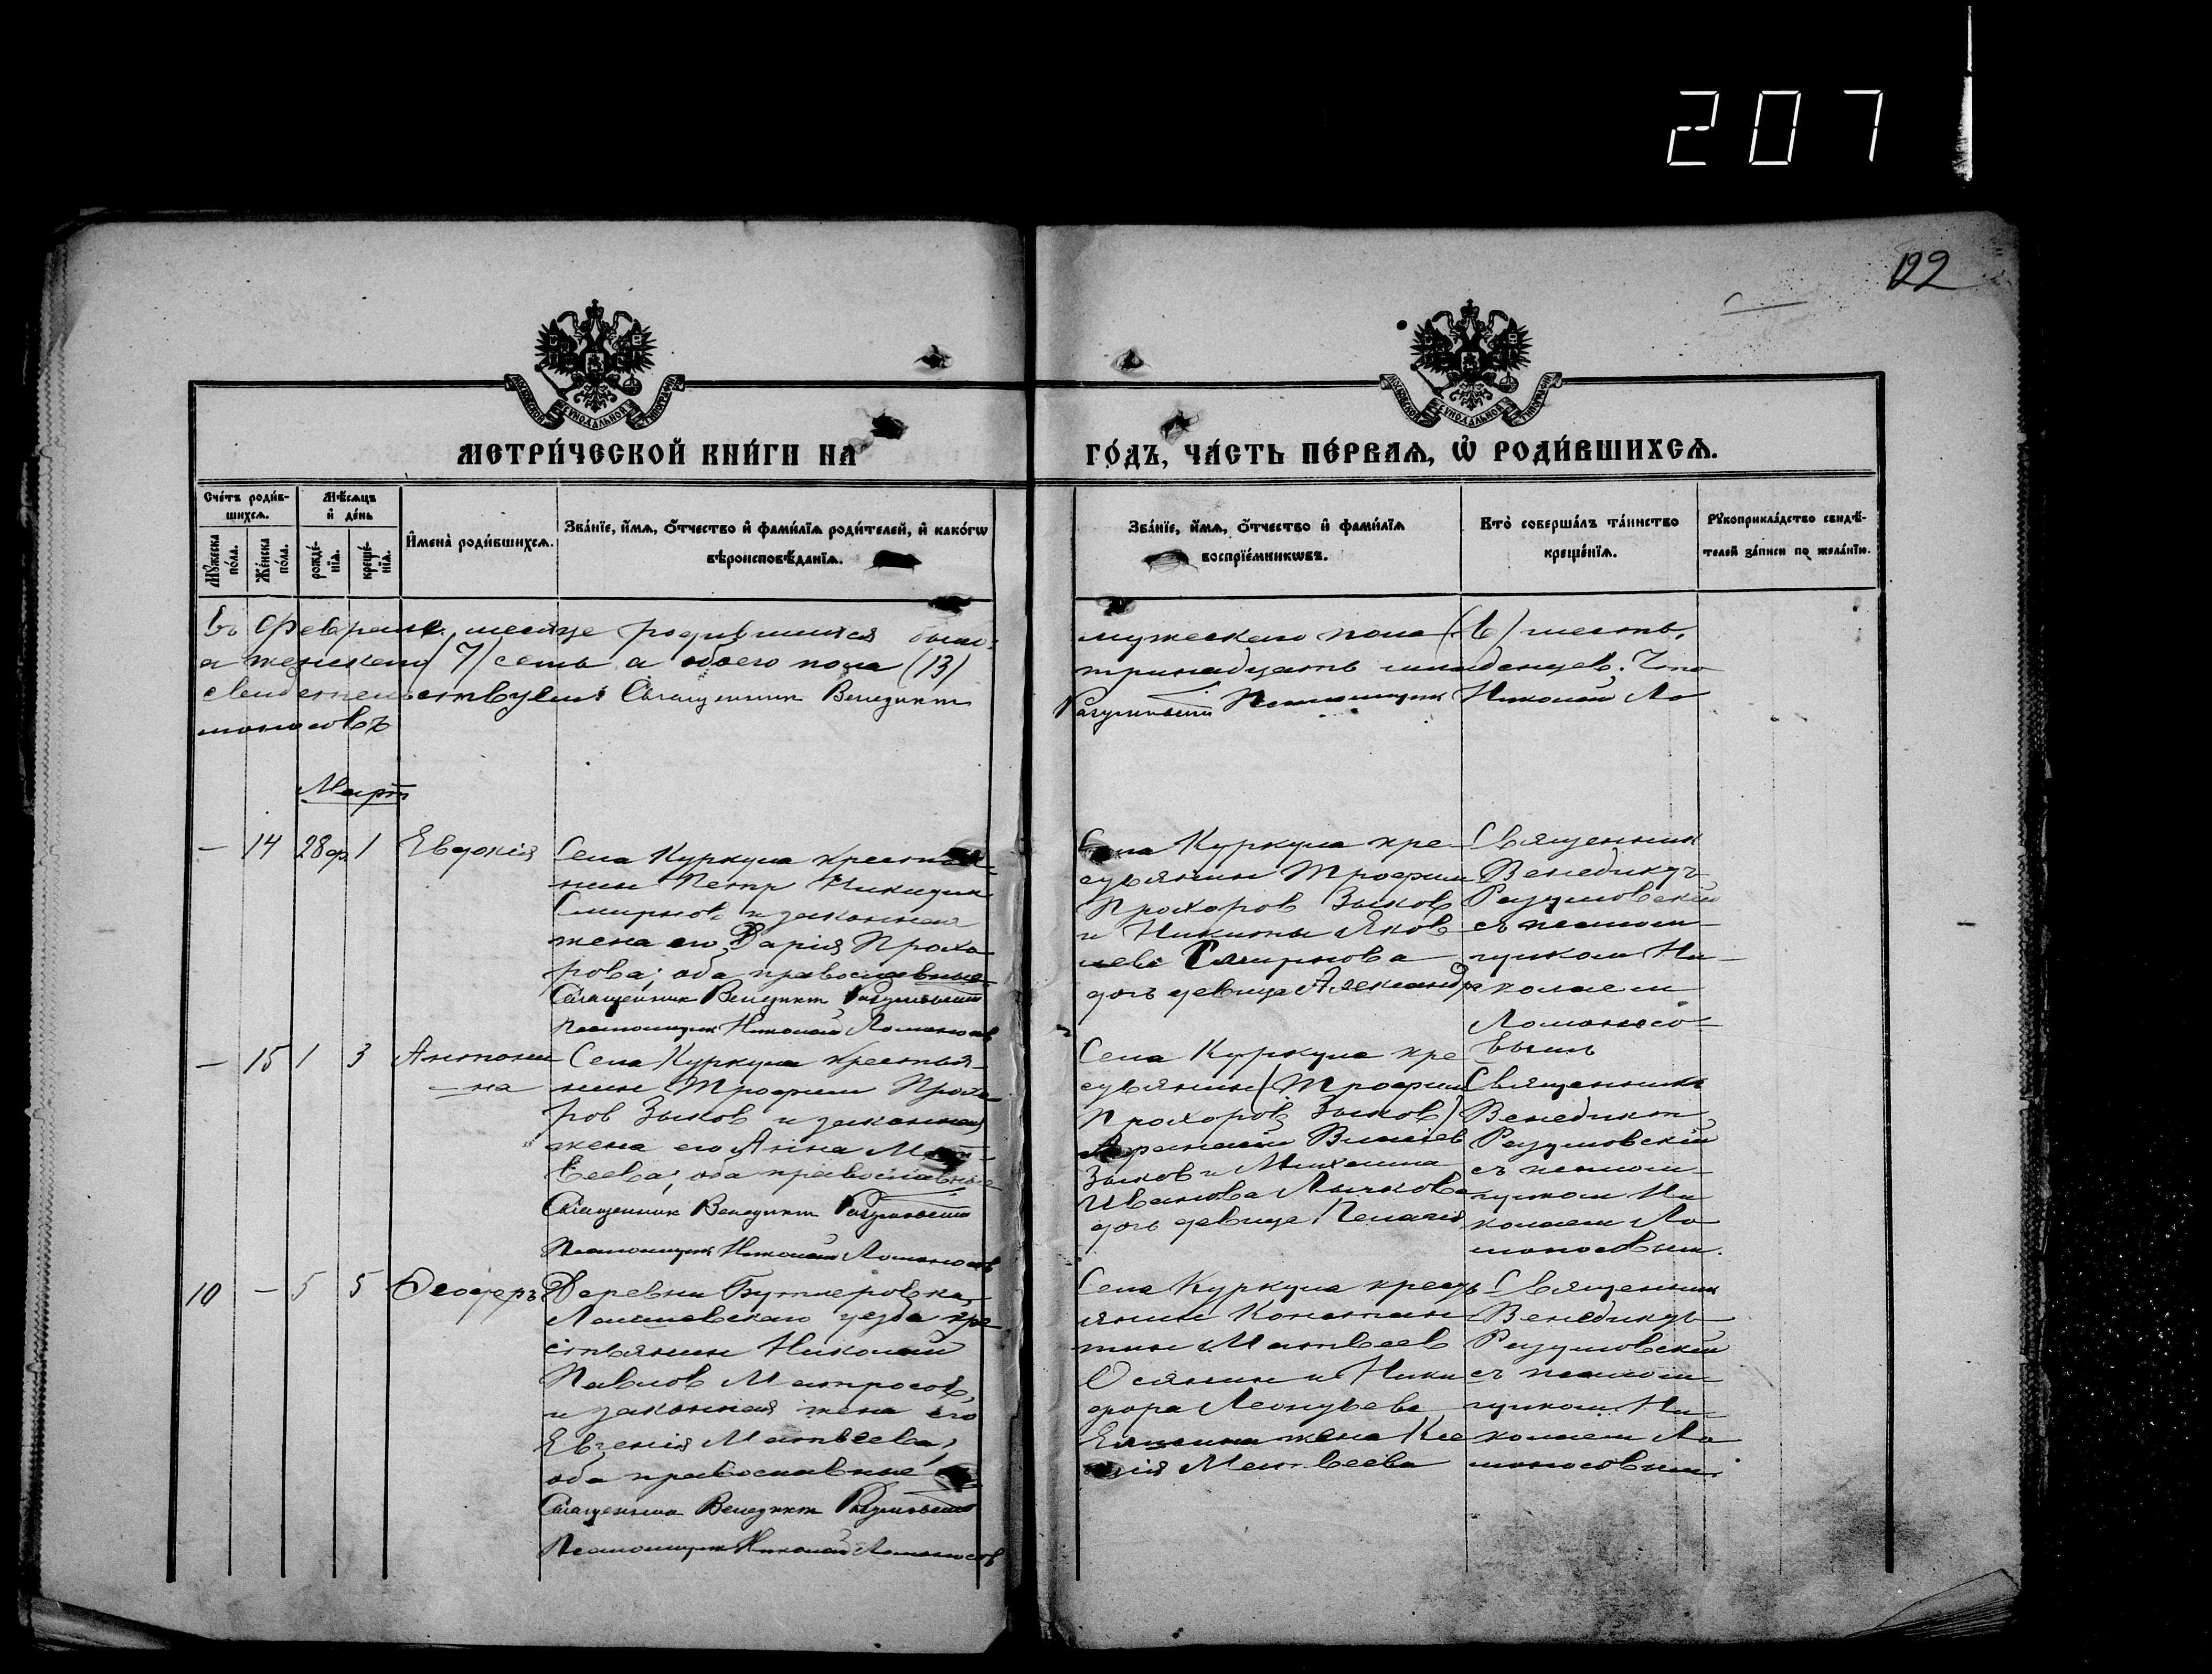 207
122
МЕТРИ́ЧЕСКОЙ КНИ́ГИ НА
ГО́ДЪ, ЧА́СТЬ ПЕ́РВАѦ, Ѡ҆ РОДИ́ВШИХСѦ.
Сче́тъ роди́в-
шихсѧ.
Мѹ́жеска по́ла.
Же́нска по́ла.
Мѣ́сѧцъ
и҆ де́нь
рожде́-
нїѧ.
креще́-
нїѧ.
И҆мена̀ роди́вшихсѧ.
Зва́нїе, и҆́мѧ, ѻ҆́тчество и҆ фамѝлїѧ роди́телей, и҆ како́гѡ
вѣроисповѣ́данїѧ.
Зва́нїе, и҆́мѧ, ѻ҆́тчество и҆ фамѝлїѧ
воспрїе́мникѡвъ.
Кто̀ соверша́лъ та́инство
креще́нїѧ.
Рѹкоприкла́дство свидѣ́-
телей за́писи по жела́нїю.
Въ Феврале месяце родившихся было:
а женскаго (7) семь а обоего пола (13)
свидетельствуем: Священник Венедикт
моносовъ
мужескаго пола (6) шесть,
тринадцать младенцев. Что
Разумовский Псаломщик Николай Ло
Март
— 14 28 ф. 1 Евдокія
Села Куркула крестья-
нин Петр Никидин
Смирнов и законная
жена его Дарія Прохо
рова; оба православные
Священник Венедикт Разумовский
Псаломщик Николай Ломоносов
Села Куркула кре-
сьянин Трофим
Прохоров Зыков
и Никиты Яков
лева Смирнова
дочь девица Александра
Священник
Венедиктъ
Разумовскій
съ псалом-
щиком Ни-
колаем
Ломоносо-
вымъ
— 15 1 3 Антони
—на
Села Куркула крестья-
нин Трофим Прохо
ров Зыков и законная
жена его Анна Мат-
веева; оба православные
Священник Венедикт Разумовский
Псаломщик Николай Ломоносов
Села Куркула кре
сьянин (Трофим
Прохоров Зыков)
Зыков и Михаила
Иванова Лычкова
дочь девица Пелагія
Священник
Венедикт
Разумовскій
съ псалом-
щиком Ни
колаем Ло
моносовым.
10 — 5 5 Феодоръ
Деревни Бутлеровка,
Лаишевскаго уезда кре
стьянин Николай
Павлов Матросов,
и законная жена его
Евгенія Матвеева;
оба православные
Священник Венедикт Разумовский
Псаломщик Николай Ломоносов
Села Куркула кресь
янин Констан
тин Матвеев
Осянин и Ники
фора Леонтьева
жена Кле
Матвеева
Священник
Венедиктъ
Разумовский
съ псалом-
щиком Ни-
колаем Ло
моносовым.